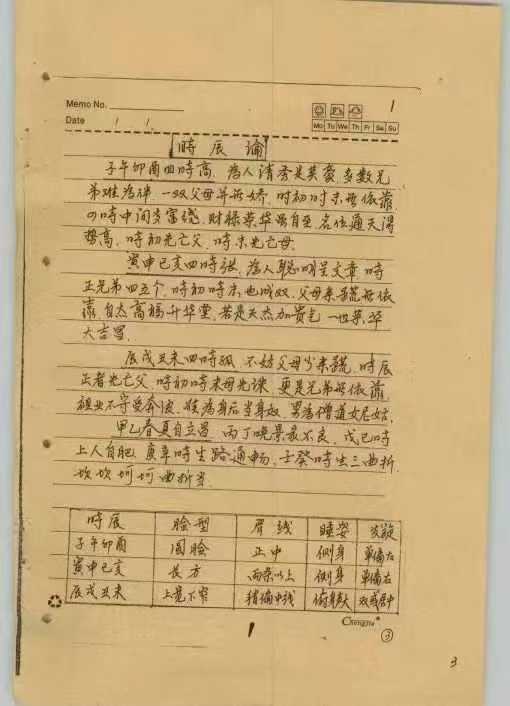 Memo No.
1
Date / /
Mo Tu We Th Fr Sa Su
時辰論
子午卯酉四時高，為人清秀是英豪多数兄
弟难為伴 一双父母并無娇，时初时末無依靠
四時中间多富饶，财禄荣华喜自至，名位通天得
势高，時初先亡父，時末先亡母。
寅申巳亥四時张，為人聪明呈文章，時
正兄弟四五个，時初時末也成双，父母亲疏無依
靠，自太高福升华堂，若是天杰加贵气 一世荣华
大吉昌。
辰戌丑未四時孤，不妨父母少亲疏，時辰
正者先亡父，時初時末母先诛，更是兄弟無依靠，
祖业不守受奔波，
男為僧道女尼姑，
甲乙春夏自立昌 丙丁晚景最不良，戊己時
上人自肥，庚辛時生路通畅，壬癸時生三曲折
坎坎坷坷曲折当
時辰 脸型 眉线 睡姿 发旋
子午卯酉 圆脸 正中 侧身 单偏左
寅申巳亥 長方 以上 侧身 单偏右
辰戌丑未 上宽下窄 稍偏中线 俯身 双或居中
1
③
3